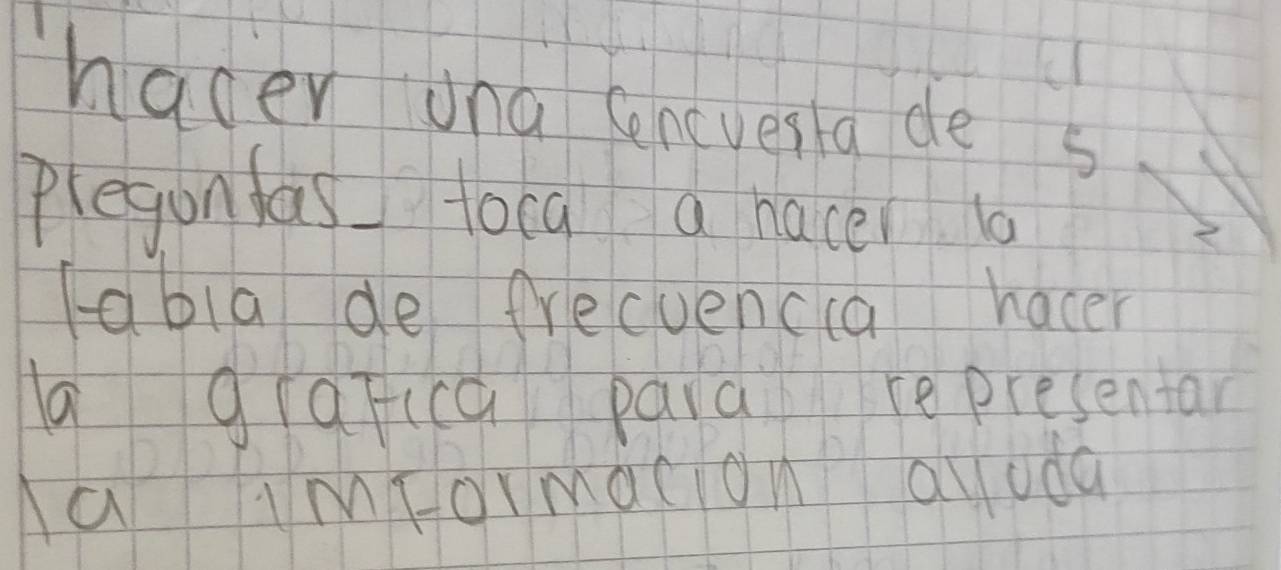 hacer una encuesta de 5
preguntas toca a hacer la
tabla de frecuencia hacer
la grafica para representar
la imformacion ayuda